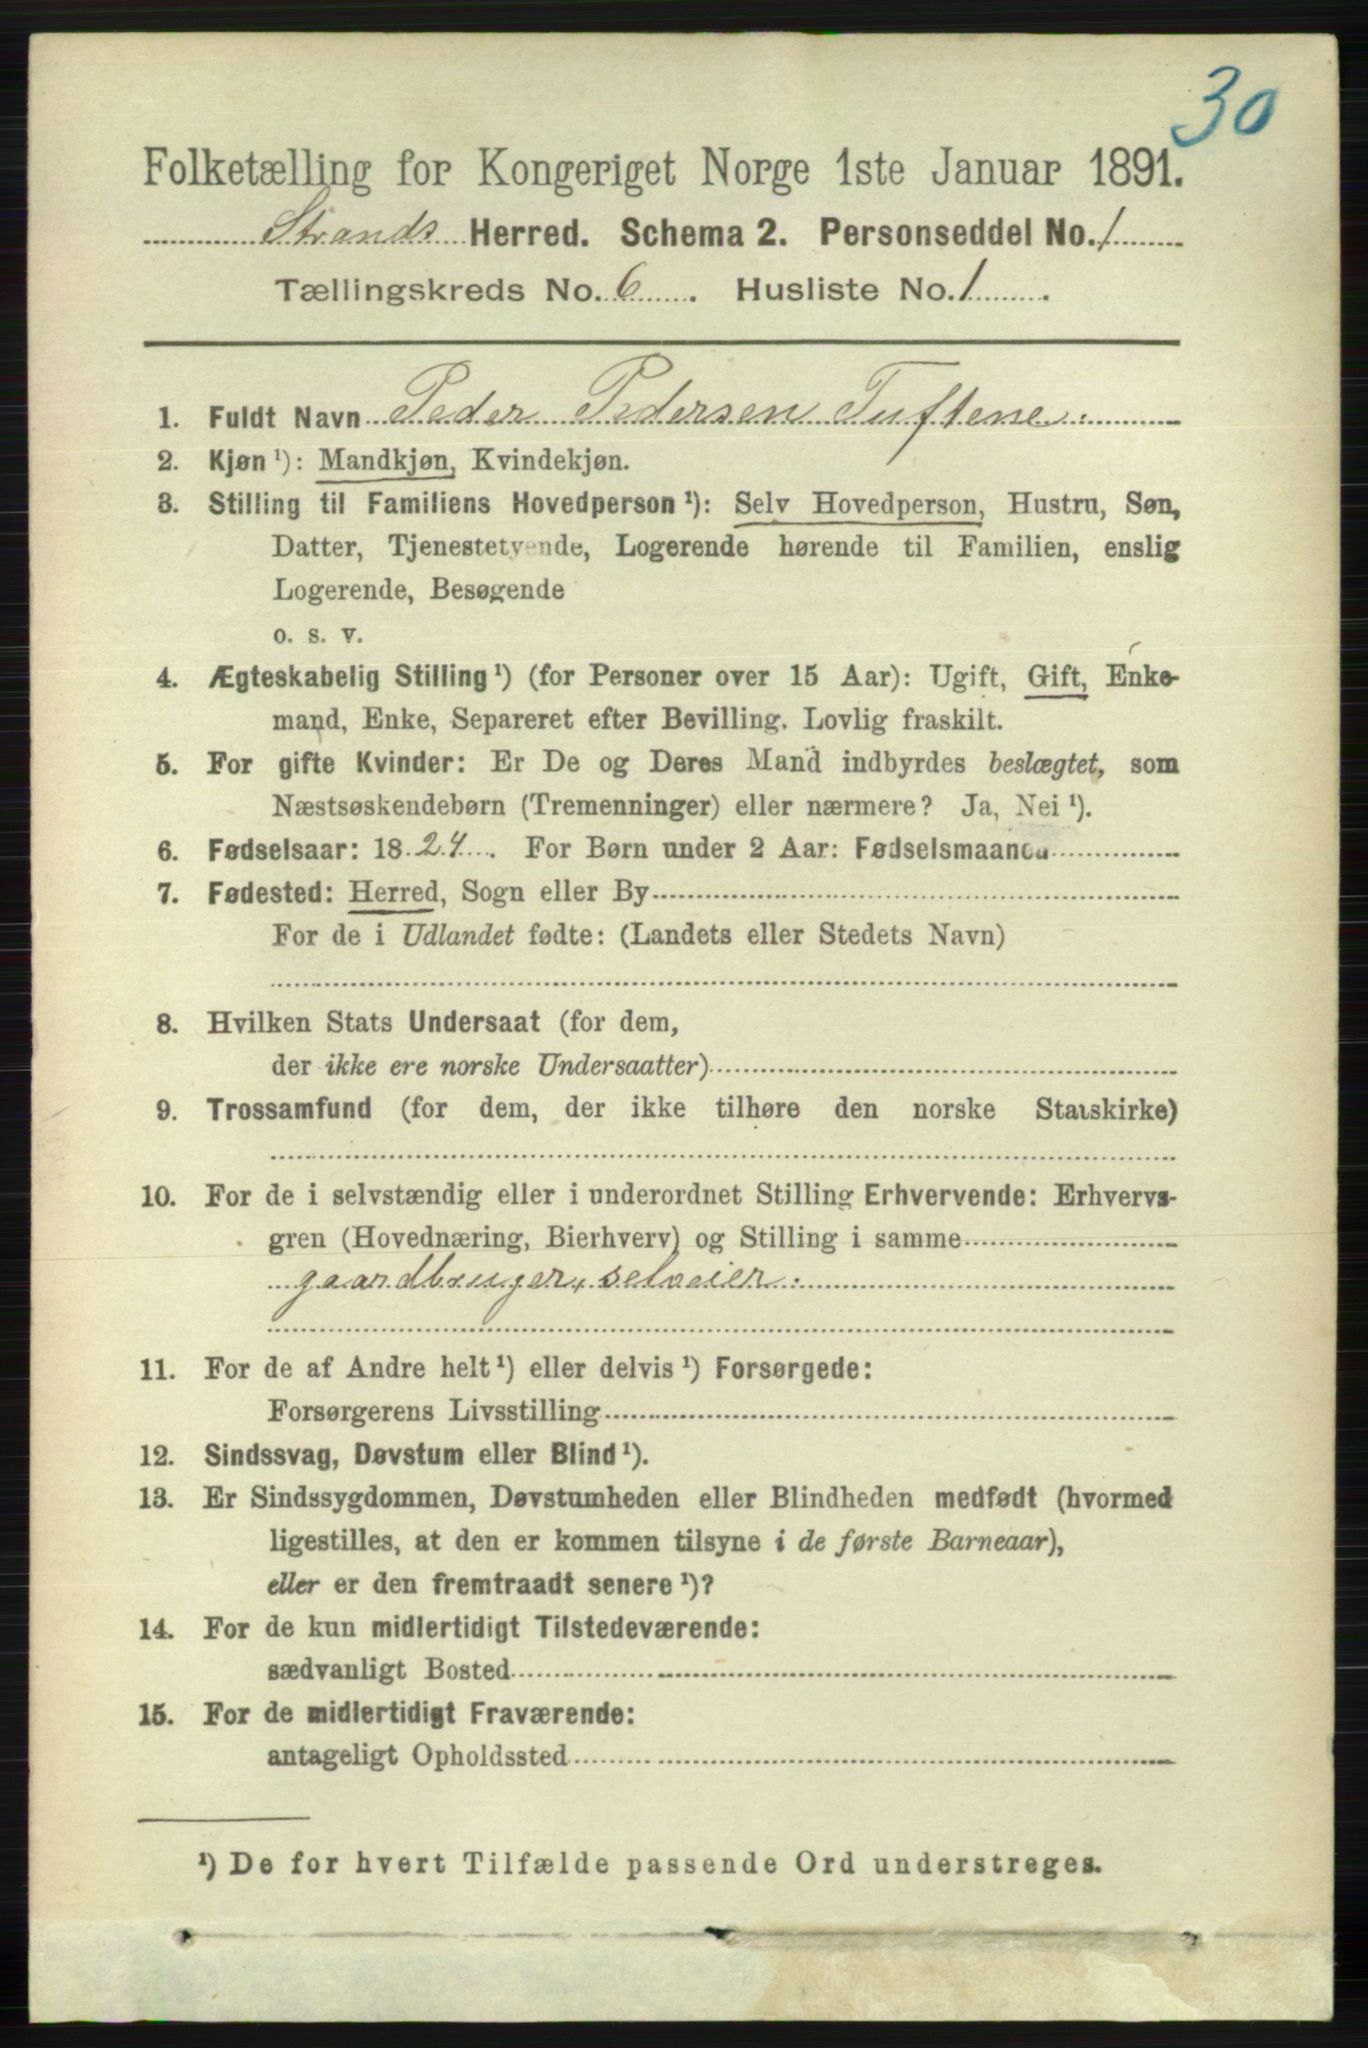 30
Folketælling for Kongeriget Norge 1ste Januar 1891.
Strands Herred. Schema 2. Personseddel No. 1
Tællingskreds No. 6. Husliste No. 1.
1. Fuldt Navn Peder Pedersen Tuftene.
2. Kjøn ¹): Mandkjøn, Kvindekjøn.
3. Stilling til Familiens Hovedperson ¹): Selv Hovedperson, Hustru, Søn,
Datter, Tjenestetyende, Logerende hørende til Familien, enslig
Logerende, Besøgende
o. s. v.
4. Ægteskabelig Stilling ¹) (for Personer over 15 Aar): Ugift, Gift, Enke-
mand, Enke, Separeret efter Bevilling. Lovlig fraskilt.
5. For gifte Kvinder: Er De og Deres Mand indbyrdes beslægtet, som
Næstsøskendebørn (Tremenninger) eller nærmere? Ja, Nei ¹).
6. Fødselsaar: 1824. For Børn under 2 Aar: Fødselsmaaned
7. Fødested: Herred, Sogn eller By
For de i Udlandet fødte: (Landets eller Stedets Navn)
8. Hvilken Stats Undersaat (for dem,
der ikke ere norske Undersaatter)
9. Trossamfund (for dem, der ikke tilhøre den norske Statskirke)
10. For de i selvstændig eller i underordnet Stilling Erhvervende: Erhvervs-
gren (Hovednæring, Bierhverv) og Stilling i samme
gaardbruger, selveier.
11. For de af Andre helt ¹) eller delvis ¹) Forsørgede:
Forsørgerens Livsstilling
12. Sindssvag, Døvstum eller Blind ¹).
13. Er Sindssygdommen, Døvstumheden eller Blindheden medfødt (hvormed
ligestilles, at den er kommen tilsyne i de første Barneaar),
eller er den fremtraadt senere ¹)?
14. For de kun midlertidigt Tilstedeværende:
sædvanligt Bosted
15. For de midlertidigt Fraværende:
antageligt Opholdssted
¹) De for hvert Tilfælde passende Ord understreges.